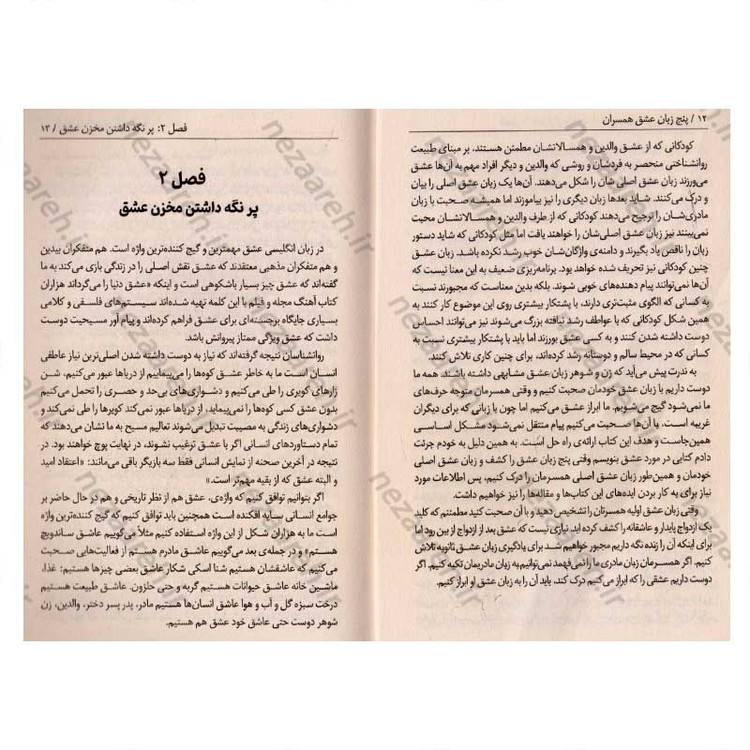 ۱۲ / پنج زبان عشق همسران
کودکانی که از عشق والدین و همسالانشان مطمئن هستند، بر مبنای طبیعت
روانشناختی منحصر به فردشان و روشی که والدین و دیگر افراد مهم به آن‌ها عشق
می‌ورزند زبان عشق اصلی شان را شکل می‌دهند. آن‌ها یک زبان عشق اصلی را بیان
و درک می‌کنند. شاید بعدها زبان دیگری را نیز بیاموزند اما همیشه صحبت با زبان
مادری‌شان را ترجیح می‌دهند کودکانی که از طرف والدین و همسالانشان محبت
نمی‌بینند نیز زبان عشق اصلی‌شان را خواهند یافت اما مثل کودکانی که شاید دستور
زبان را ناقص یاد بگیرند و دامنه‌ی واژگان‌شان خوب رشد نکرده باشد. زبان عشق
چنین کودکانی نیز تحریف شده خواهد بود. برنامه‌ریزی ضعیف به این معنا نیست که
آن‌ها نمی‌توانند پیام دهنده‌های خوبی شوند. بلکه بدین معناست که مجبورند نسبت
به کسانی که الگوی مثبت‌تری دارند، با پشتکار بیشتری روی این موضوع کار کنند به
همین شکل کودکانی که با عواطف رشد نیافته بزرگ می‌شوند نیز می‌توانند احساس
دوست داشته شدن کنند و به کسی عشق بورزند اما باید با پشتکار بیشتری نسبت به
کسانی که در محیط سالم و دوستانه رشد کرده‌اند، برای چنین کاری تلاش کنند.
به ندرت پیش می‌آید که زن و شوهر زبان عشق مشابهی داشته باشند. همه ما
دوست داریم با زبان عشق خودمان صحبت کنیم و وقتی همسرمان متوجه حرف‌های
ما نمی‌شود گیج می‌شویم. ما ابراز عشق می‌کنیم اما چون با زبانی که برای دیگران
غریبه است، با آن‌ها صحبت می‌کنیم پیام منتقل نمی‌شود مشکل اساسی
همین‌جاست و هدف این کتاب ارائه‌ی راه حل است. به همین دلیل به خودم جرئت
دادم کتابی در مورد عشق بنویسم وقتی پنج زبان عشق را کشف و زبان عشق اصلی
خودمان و همین‌طور زبان عشق اصلی همسرمان را درک کنیم، پس اطلاعات مورد
نیاز برای به کار بردن ایده‌های این کتاب‌ها و مقاله‌ها را نیز خواهیم داشت.
وقتی زبان عشق اولیه همسرتان را تشخیص دهید و با آن صحبت کنید مطمئنم که کلید
یک ازدواج پایدار و عاشقانه را کشف کرده اید. نیازی نیست که عشق بعد از ازدواج از بین رود اما
برای اینکه آن را زنده نگه داریم مجبور خواهیم شد. برای یادگیری زبان عشق ثانویه تلاش
کنیم. اگر همسرمان زبان مادری ما را نمی‌فهمد نمی‌توانیم به زبان مادریمان تکیه کنیم. اگر
دوست داریم عشقی را که ابراز می‌کنیم درک کند، باید آن را به زبان عشق او ابراز کنیم.
فصل ۲: پر نگه داشتن مخزن عشق / ۱۳
فصل ۲
پر نگه داشتن مخزن عشق
در زبان انگلیسی عشق مهمترین و گیج کننده‌ترین واژه است. هم متفکران بیدین
و هم متفکران مذهبی معتقدند که عشق نقش اصلی را در زندگی بازی می‌کند به ما
گفته‌اند که عشق چیز بسیار باشکوهی است و اینکه «عشق دنیا را می‌گرداند هزاران
کتاب آهنگ مجله و فیلم با این کلمه تهیه شده‌اند سیستم‌های فلسفی و کلامی
بسیاری جایگاه برجسته‌ای برای عشق فراهم کرده‌اند و پیام آور مسیحیت دوست
داشت که عشق ویژگی ممتاز پیروانش باشد.
روانشناسان نتیجه گرفته‌اند که نیاز به دوست داشته شدن اصلی‌ترین نیاز عاطفی
انسان است ما به خاطر عشق کوه‌ها را می‌پیماییم از دریاها عبور می‌کنیم، شن
زارهای کویری را طی می‌کنیم و دشواری‌های بی‌حد و حصری را تحمل می‌کنیم
بدون عشق کسی کوه‌ها را نمی‌پیماید، از دریاها عبور نمی‌کند کویرها را طی نمی‌کند و
دشواری‌های زندگی به مصیبت تبدیل می‌شوند تعالیم مسیح به ما نشان می‌دهند که
تمام دستاوردهای انسانی اگر با عشق ترغیب نشوند، در نهایت پوچ خواهند بود. در
نتیجه در آخرین صحنه از نمایش انسانی فقط سه بازیگر باقی می‌مانند: «اعتقاد امید
و البته عشق که از بقیه مهم‌تر است.»
اگر بتوانیم توافق کنیم که واژه‌ی، عشق هم از نظر تاریخی و هم در حال حاضر بر
جوامع انسانی سایه افکنده است همچنین باید توافق کنیم که گیج کننده‌ترین واژه
است ما به هزاران شکل از این واژه استفاده کنیم مثلاً می‌گوییم عاشق ساندویچ
هستم» و در جمله‌ی بعد می‌گوییم عاشق مادرم هستم از فعالیت‌هایی صحبت
می‌کنیم که عاشقشان هستیم شنا اسکی شکار عاشق بعضی چیزها هستیم: غذا،
ماشین خانه عاشق حیوانات هستیم گربه و حتی حلزون. عاشق طبیعت هستیم
درخت سبزه گل و آب و هوا عاشق انسان‌ها هستیم مادر، پدر پسر دختر، والدین، زن
شوهر دوست حتی عاشق خود عشق هم هستیم.
nezaareh.ir